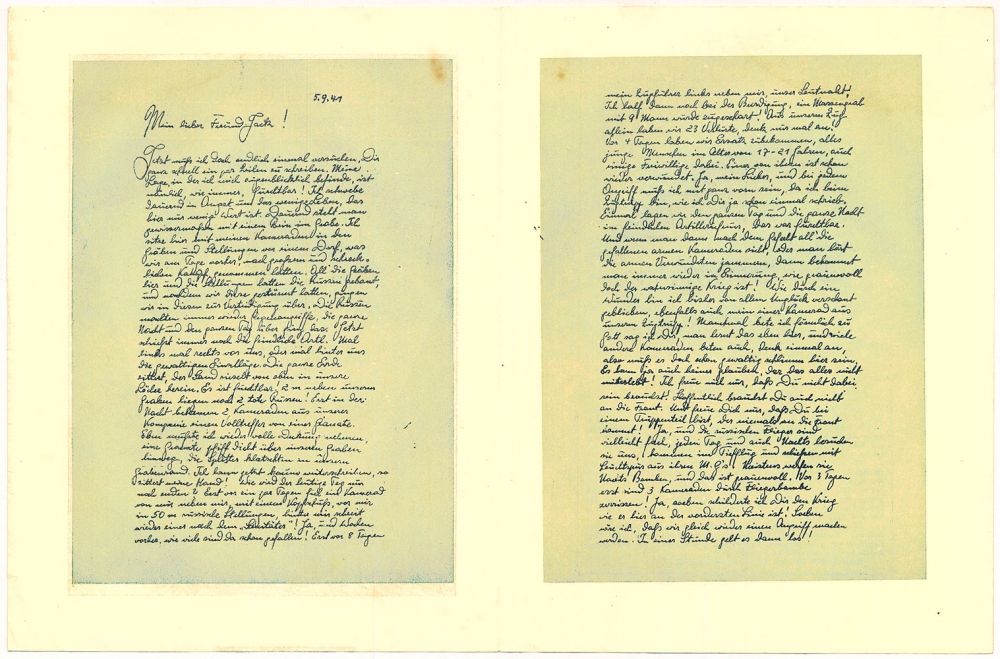 5.9.41
Mein lieber Freund
Jetzt muß ich doch endlich einmal versuchen, Dir
ganz schnell ein par Zeilen zu schreiben. Meine
Lage, in der ich mich augenblicklich befinde, ist
nämlich, wie immer, furchtbar! Ich schwebe
dauernd in Angst und das wenige Leben, das
hier nur wenig Wert ist. Dauernd steht man
gewissermaßen mit einem Bein im Grabe. Ich
sitze hier mit meinen Kameraden in den
Gräben und Stellungen vor einem Dorf, was
wir am Tage vorher, nach großem und schreck-
lichem Kampf genommen hatten. All' die Gräben
hier und die Stellungen hatten die Russen gebaut,
und nachdem wir diese gestürmt hatten, gingen
wir in diesen zur Verteidigung über, die Russen
machten immer wieder Gegenangriffe, die ganze
Nacht und den ganzen Tag über ging das. Jetzt
schießt immer noch die feindliche Artl. Mal
links mal rechts vor uns, oder mal hinter uns
die gewaltigen Einschläge. Die ganze Erde
zittert, der Sand rieselt von oben in unsere
Löcher herein. Es ist furchtbar! 2 m neben unserem
Graben liegen noch 2 tote Russen! Erst in der
Nacht bekamen 2 Kameraden aus unserer
Kompanie einen Volltreffer von einer Granate.
Eben mußte ich wieder volle Deckung nehmen,
eine Granate pfiff dicht über unseren Graben
hinweg, die Splitter klatschten in unsern
Grabenrand. Ich kann jetzt kaum weiterschreiben, so
zittert meine Hand! Wie wird der heutige Tag nur
noch enden? Erst vor ein par Tagen fiel ein Kamerad
von mir neben mir, mit einem Kopfschuß, vor mir
in 50 m russische Stellungen, hinter mir schreit
wieder einer nach dem „Sanitäter"! Ja, und Wochen
vorher, wie viele sind da schon gefallen! Erst vor 8 Tagen
mein Zugführer links neben mir, unser Leutnant!
Ich half dann noch bei der Beerdigung, ein Massengrab
mit 9 Mann wurde zugeschart. Aus unserem Zug
allein haben wir 23 Verluste, denk nur mal an.
Vor 4 Tagen haben wir Ersatz zubekommen, alles
junge Menschen im Alter von 17-21 Jahren, auch
einige Freiwillige dabei. Einer von ihnen ist schon
wieder verwundet. Ja, mein Lieber, und bei jedem
Angriff muß ich mit ganz vorn sein, da ich beim
Zugtrupp bin, wie ich Dir ja schon einmal schrieb.
Einmal lagen wir den ganzen Tag und die ganze Nacht
im feindlichen Artilleriefeuer, das war furchtbar.
Und wenn man dann nach dem Gefecht all' die
gefallenen armen Kameraden sieht, oder man hört
die armen Verwundeten jammern, dann bekommt
man immer wieder in Erinnerung, wie grauenvoll
doch der wahnsinnige Krieg ist! Wie durch ein
Wunder bin ich bisher von allem Unglück verschont
geblieben, ebenfalls auch mein einer Kamerad aus
unserem Zugtrupp! Manchmal bete ich förmlich zu
Gott sag ich Dir, man lernt das eben hier, und viele
andere Kameraden beten auch, denk einmal an,
also muß es doch schon gewaltig schlimm hier sein.
Es kann ja auch keiner glauben, der das alles nicht
miterlebt! Ich freue mich nur, daß Du nicht dabei
sein brauchst. Hoffentlich brauchst Du auch nicht
an die Front. Und freue Dich nur, daß Du bei
einem Truppenteil bist, der niemals an die Front
kommt! Ja, und die russischen Flieger sind
vielleicht frech, jeden Tag und auch Nachts besuchen
sie uns, kommen im Tiefflug und schießen mit
Leuchtspur aus ihren M.G's. Meistens werfen sie
Nachts Bomben, und das ist grauenvoll. Vor 3 Tagen
erst sind 3 Kameraden durch Fliegerbombe
zerrissen! Ja, soeben schilderte ich Dir den Krieg
wie er hier an der vordersten Linie ist! Soeben
höre ich, daß wir gleich wieder einen Angriff machen
werden. In einer Stunde geht es dann los!